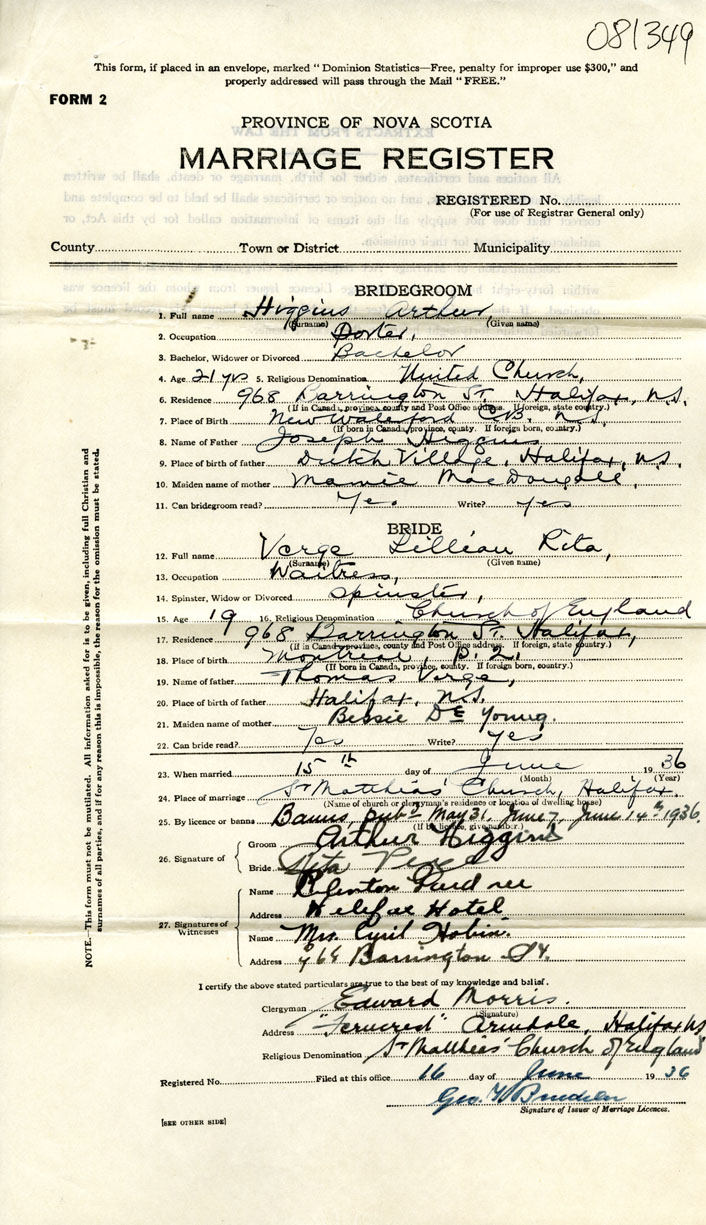 081349
This form, if placed in an envelope, marked "Dominion Statistics—Free, penalty for improper use $300," and
properly addressed will pass through the Mail "FREE."
FORM 2
PROVINCE OF NOVA SCOTIA
MARRIAGE REGISTER
REGISTERED No.
(For use of Registrar General only)
County Town or District Municipality
BRIDEGROOM
1. Full name Higgins Arthur,
(Surname) (Given name)
2. Occupation Porter,
3. Bachelor, Widower or Divorced Bachelor
4. Age 21 yrs 5. Religious Denomination United Church,
6. Residence 968 Barrington St. Halifax, N.S.
(If in Canada, province, county and Post Office address. If foreign, state country.)
7. Place of Birth New Waterford C.B. N.S.
(If born in Canada, province, county. If foreign born, country.)
8. Name of Father Joseph Higgins
9. Place of birth of father Dutch Village, Halifax, N.S.
10. Maiden name of mother Mamie MacDougall,
11. Can bridegroom read? Yes Write? yes
BRIDE
12. Full name Verge Lillian Rita,
(Surname) (Given name)
13. Occupation Waitress,
14. Spinster, Widow or Divorced spinster,
15. Age 19 16. Religious Denomination Church of England
17. Residence 968 Barrington St. Halifax,
(If in Canada, province, county and Post Office address. If foreign, state country.)
18. Place of birth Montreal, P.Q.
(If born in Canada, province, county. If foreign born, country.)
19. Name of father Thomas Verge,
20. Place of birth of father Halifax, N.S.
21. Maiden name of mother Bessie De Young.
22. Can bride read? Yes Write? yes
23. When married 15th day of June 1936
(Month) (Year)
24. Place of marriage St Matthias' Church, Halifax.
(Name of church or clergyman's residence or location of dwelling house)
25. By licence or banns Banns, pubd May 31, June 7, June 14th 1936.
(If by licence, give number.)
26. Signature of
Groom Arthur Higgins
Bride Rita Verge
27. Signatures of Witnesses
Name Clinton Gardner
Address Halifax Hotel
Name Mrs. Cyril
Address 968 Barrington St.
I certify the above stated particulars are true to the best of my knowledge and belief.
Clergyman Edward Morris.
(Signature)
Address "Ferncrest" Armdale, Halifax NS
Religious Denomination St Matthias' Church of England
Registered No. Filed at this office 16 day of June 1936
Geo.
Signature of Issuer of Marriage Licences.
[SEE OTHER SIDE]
NOTE.—This form must not be mutilated. All information asked for is to be given, including full Christian and
surnames of all parties, and if for any reason this is impossible, the reason for the omission must be stated.